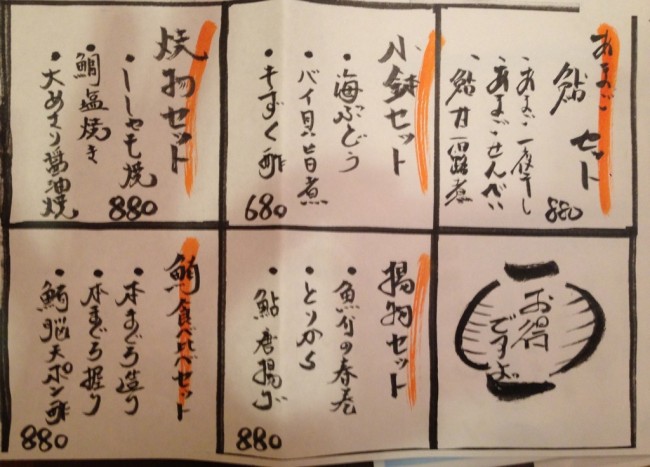 あまご
鮎セット
・あまご一夜干し
・あまごせんべい
・鮎甘露煮
880
小鉢セット
・海ぶどう
・バイ貝旨煮
・もずく酢
680
焼物セット
・ししゃも焼
・鯛塩焼き
・大あさり醤油焼
880
お得
ですよ
揚物セット
・とりから
・鮎唐揚げ
880
鮪食べ比べセット
・本まぐろ造り
・本まぐろ握り
・鮪脳天ポン酢
880